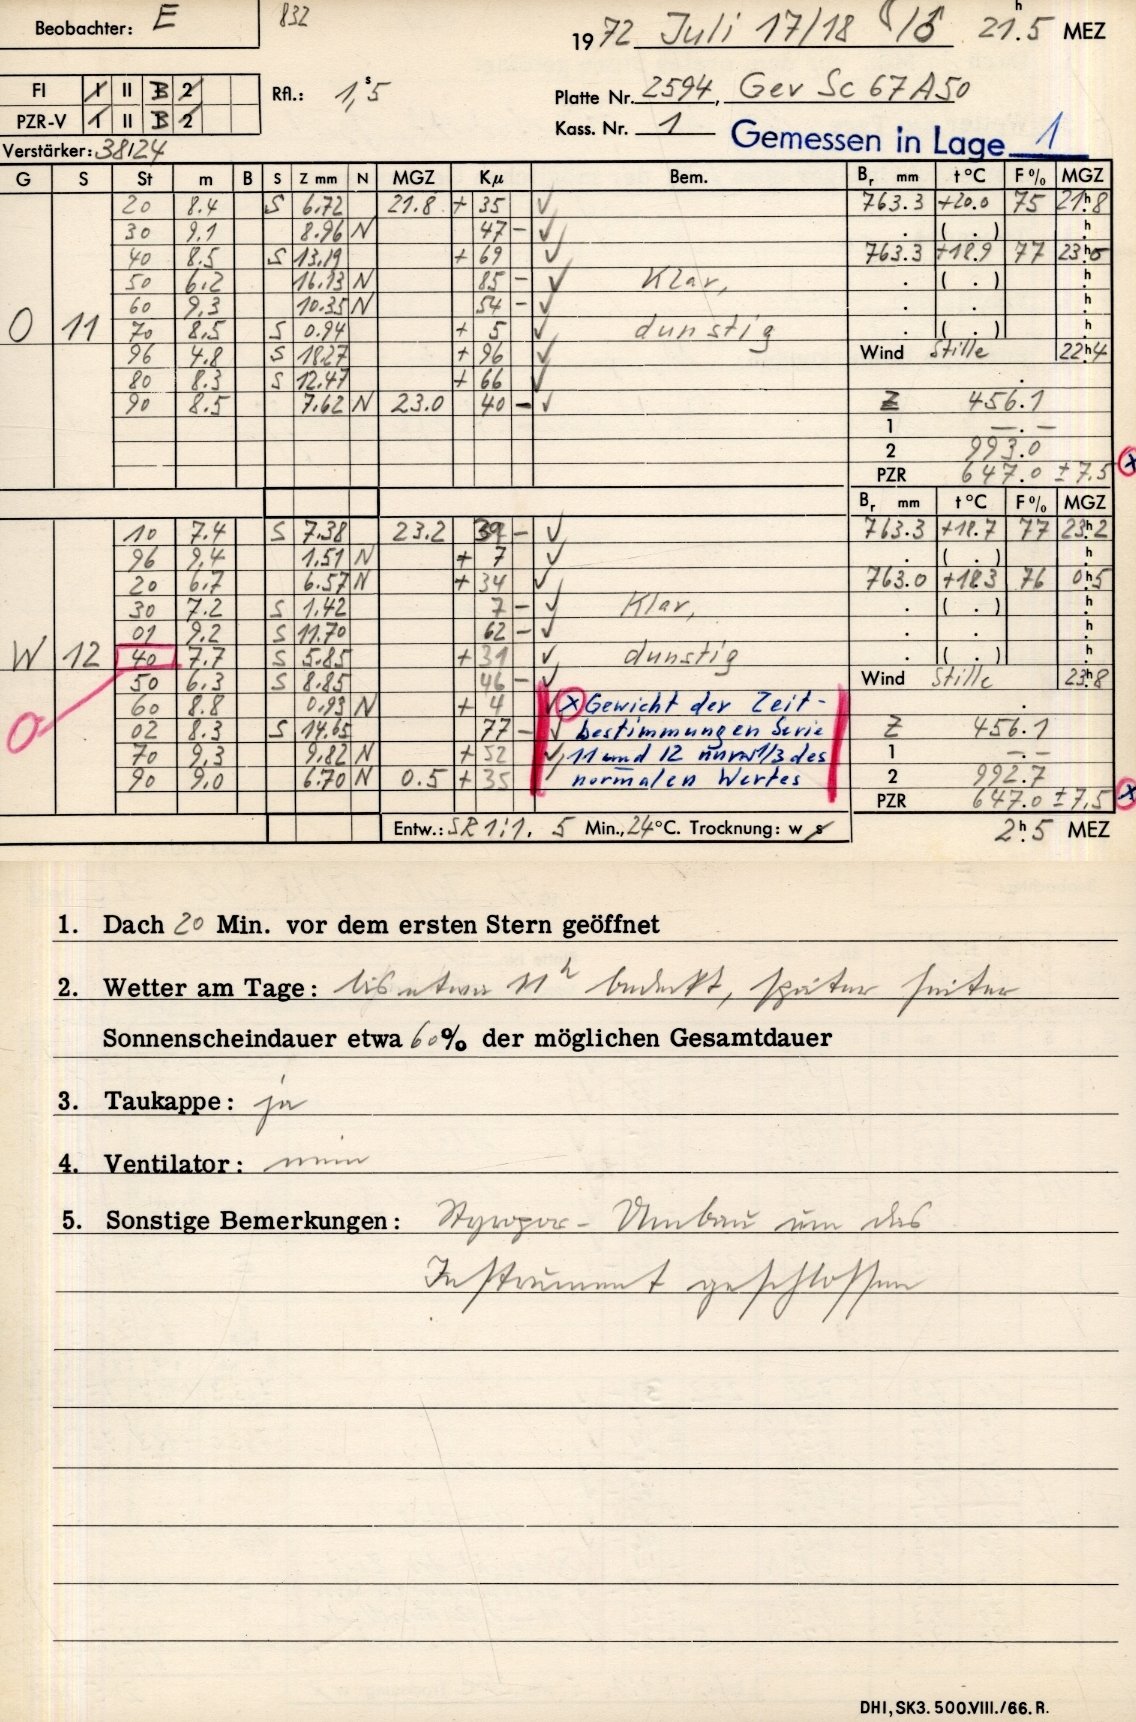 Beobachter: E 832
1972 Juli 17/18 21h.5 MEZ
FI I II B 2 Rfl.: 1,s5
Platte Nr. 2594, Gev Sc 67A50
PZR-V 1 II B 2
Kass. Nr. 1 Gemessen in Lage 1
Verstärker: 38124
G S St m B S Z mm N MGZ Kµ Bem. Br mm t°C F% MGZ
20 8.4 S 6.72 21.8 + 35 √ 763.3 +20.0 75 21h8
30 9.1 8.96 N 47 - √ . ( . ) h
40 8.5 S 13.19 + 69 √ 763.3 +18.9 77 23h0
50 6.2 16.13 N 85 - √ Klar, . ( . ) h
60 9.3 10.35 N 54 - √ . . h
O 11 70 8.5 S 0.94 + 5 √ dunstig . ( . ) h
96 4.8 S 18.27 + 96 √ Wind Stille 22h4
80 8.3 S 12.47 + 66 √ .
90 8.5 7.62 N 23.0 40 - √ Z 456.1
1 —.—
2 993.0
PZR 647.0 ±7.5 x
Br mm t°C F% MGZ
10 7.4 S 7.38 23.2 39 - √ 763.3 +18.7 77 23h2
96 9.4 1.51 N + 7 √ . ( . ) h
20 6.7 6.57 N + 34 √ 763.0 +18.3 76 0h5
30 7.2 S 1.42 7 - √ Klar, . ( . ) h
01 9.2 S 11.70 62 - √ . . h
W 12 40 7.7 S 5.85 + 31 √ dunstig . ( . ) h
50 6.3 S 8.85 46 - √ Wind Stille 23h8
60 8.8 0.93 N + 4 √ x Gewicht der Zeit- .
02 8.3 S 14.65 77 - √ bestimmungen Serie Z 456.1
70 9.3 9.82 N + 52 √ 11 und 12 nur 1/3 des 1 —.—
90 9.0 6.70 N 0.5 + 35 normalen Wertes 2 992.7
PZR 647.0 ±7.5 x
Entw.: SR 1:1, 5 Min., 24°C. Trocknung: w s 2h.5 MEZ
1. Dach 20 Min. vor dem ersten Stern geöffnet
2. Wetter am Tage: bis etwa 11h bedeckt, später heiter
Sonnenscheindauer etwa 60% der möglichen Gesamtdauer
3. Taukappe: ja
4. Ventilator: nein
5. Sonstige Bemerkungen: Styropor-Umbau um das
Instrument geschlossen
DHI, SK3. 500.VIII./66. R.